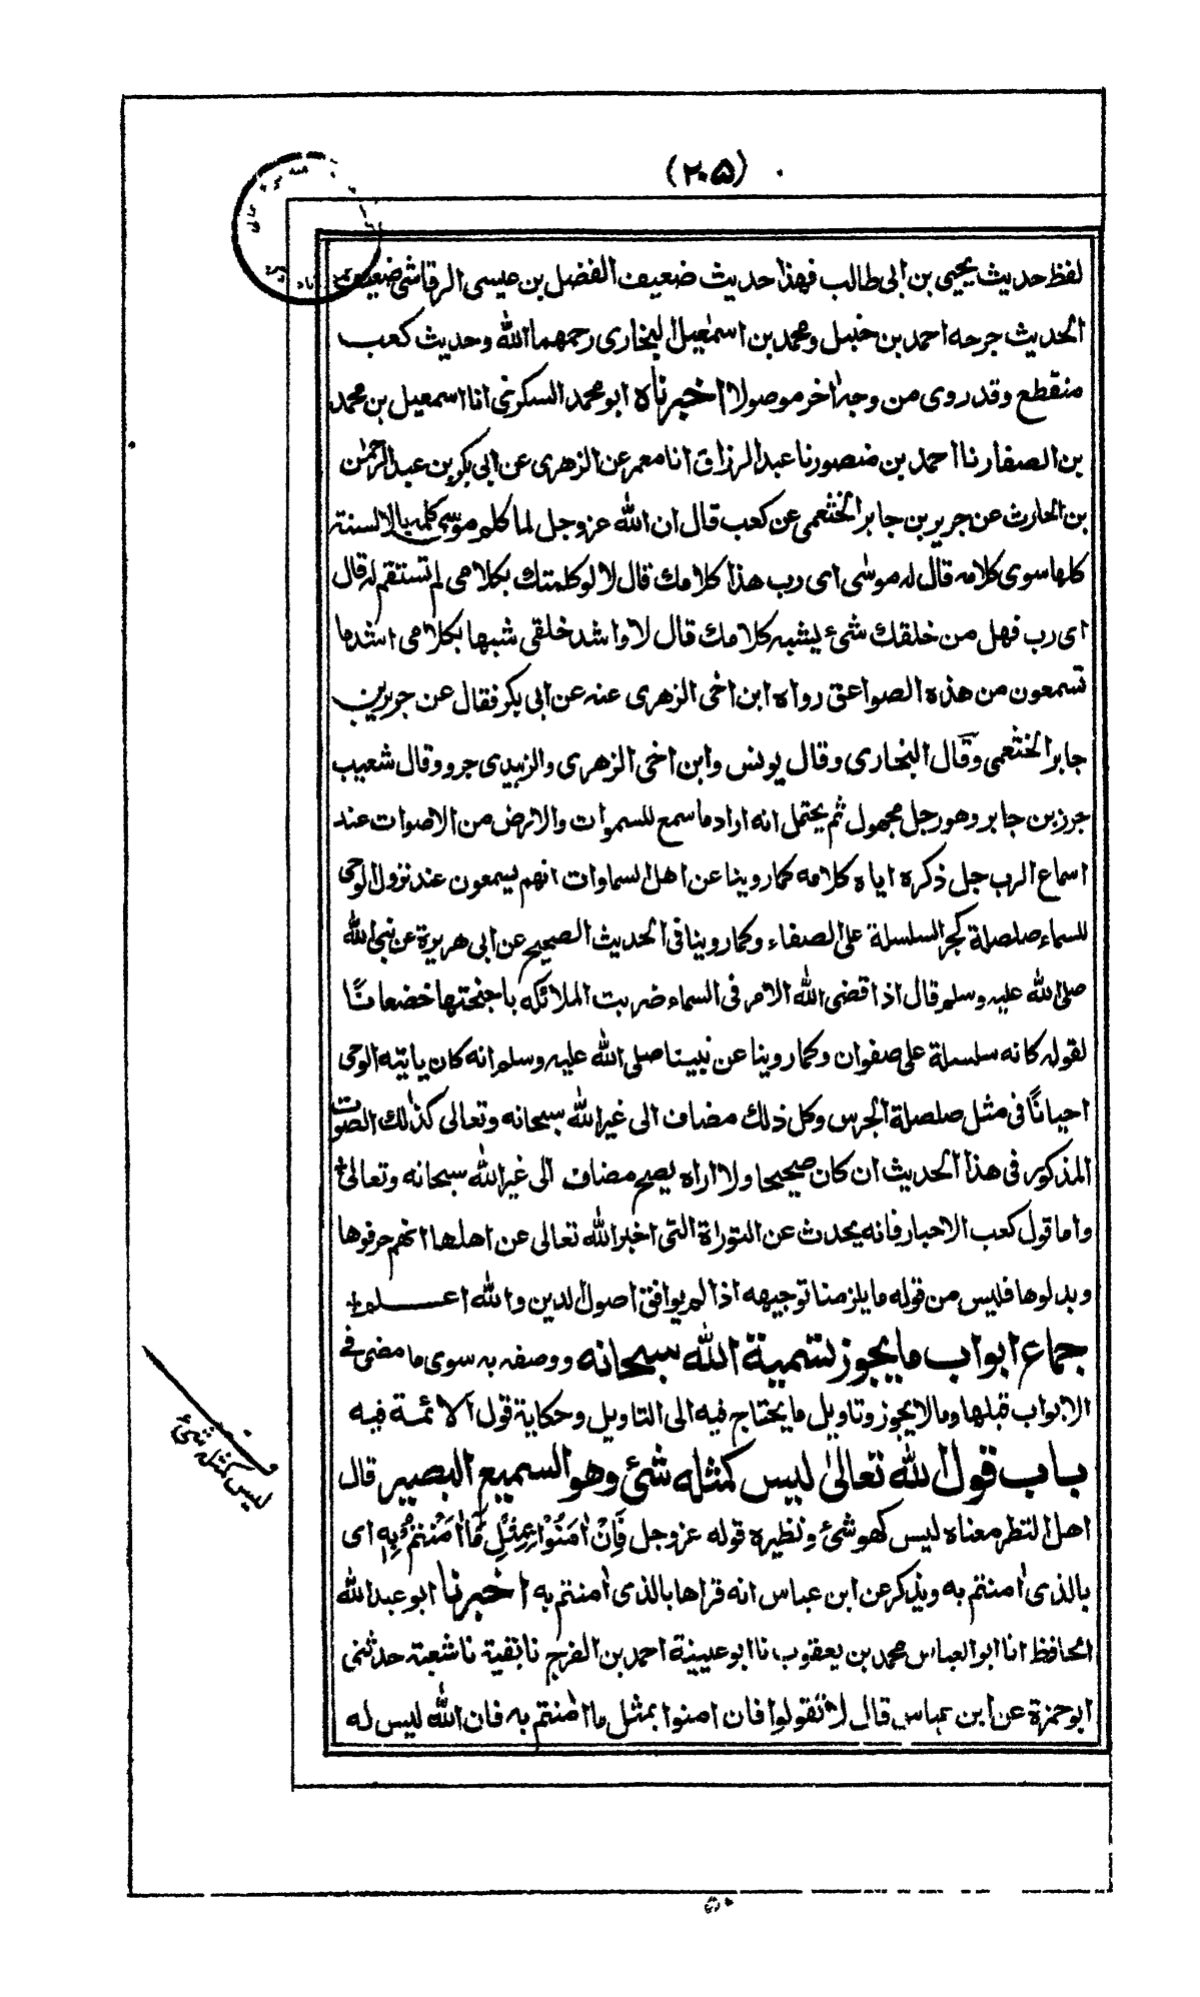 (٢٠٥)
لفظ حديث يحيى بن ابى طالب فهذا حديث ضعيف الفضل بن عيسى الرقاشى ضعيف
الحديث جرحه احمد بن حنبل ومحمد بن اسمعيل البخارى رحمهما الله وحديث كعب
منقطع وقد روى من وجه اخر موصولا اخبرناه ابو محمد السكرى انا اسمعيل بن محمد
بن الصفار نا احمد بن منصور نا عبد الرزاق انا معمر عن الزهرى عن ابى بكر بن عبد الرحمن
بن الحارث عن جرير بن جابر الخثعمى عن كعب قال ان الله عز وجل لما كلم موسى كلمه بالالسنة
كلها سوى كلامه قال له موسى اى رب هذا كلامك قال لا لو كلمتك بكلامى لم تستقم له قال
اى رب فهل من خلقك شئ يشبه كلامك قال لا واشد خلقى شبها بكلامى اشد ما
تسمعون من هذه الصواعق رواه ابن اخى الزهرى عنه عن ابى بكر فقال عن جرير بن
جابر الخثعمى وقال البخارى وقال يونس وابن اخى الزهرى والزبيدى جرو وقال شعيب
جرز بن جابر وهو رجل مجهول ثم يحتمل انه اراد ما سمع للسموات والارض من الاصوات عند
اسماع الرب جل ذكره اياه كلامه كما روينا عن اهل السماوات انهم يسمعون عند نزول الوحى
للسماء صلصلة كجر السلسلة على الصفاء وكما روينا فى الحديث الصحيح عن ابى هريرة عن نبى الله
صلى الله عليه وسلم قال اذا قضى الله الامر فى السماء ضربت الملائكه باجنحتها خضعانًا
لقوله كانه سلسلة على صفوان وكما روينا عن نبينا صلى الله عليه وسلم انه كان ياتيه الوحى
احيانًا فى مثل صلصلة الجرس وكل ذلك مضاف الى غير الله سبحانه وتعالى كذلك الصوت
المذكور فى هذا الحديث ان كان صحيحا ولا اراه يصح مضاف الى غير الله سبحانه وتعالى
واما قول كعب الاحبار فانه يحدث عن التوراة التى اخبر الله تعالى عن اهلها انهم حرفوها
وبدلوها فليس من قوله ما يلزمنا توجيهه اذا لم يوافق اصول الدين والله اعلم
جماع ابواب ما يجوز تسمية الله سبحانه ووصفه به سوى ما مضى فى
الابواب قبلها وما لا يجوز وتاويل ما يحتاج فيه الى التاويل وحكاية قول الائمة فيه
باب قول الله تعالى ليس كمثله شئ وهو السميع البصير قال
اهل النظر معناه ليس كهو شئ ونظيره قوله عز وجل فَاِنْ اٰمَنُوْا بِمِثْلِ مَا اٰمَنْتُمْ بِهٖ اى
بالذى امنتم به ويذكر عن ابن عباس انه قراها بالذى امنتم به اخبرنا ابو عبد الله
الحافظ انا ابو العباس محمد بن يعقوب نا ابو عيينة احمد بن الفرج نا بقية نا شعبة حدثنى
ابو حمزة عن ابن عباس قال لا تقولوا فان امنوا بمثل ما امنتم به فان الله ليس له
ليس كمثله شئ